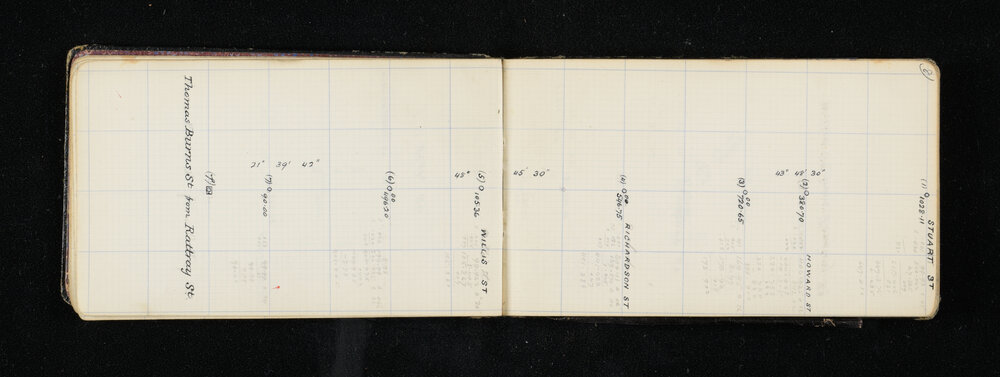 Thomas Burns St from Rattray St.
21° 39' 47"
(7) 0
90.00
(6) 0.00
696.20
48° 45' 30"
(5) 0
105.36
WILLIS ST
(4) 0.00
596.75
RICHARDSON ST
(3) 0.00
720.65
43° 48' 30"
(2) 0
380.70
HOWARD ST
(1) 0
1028.11
STUART ST